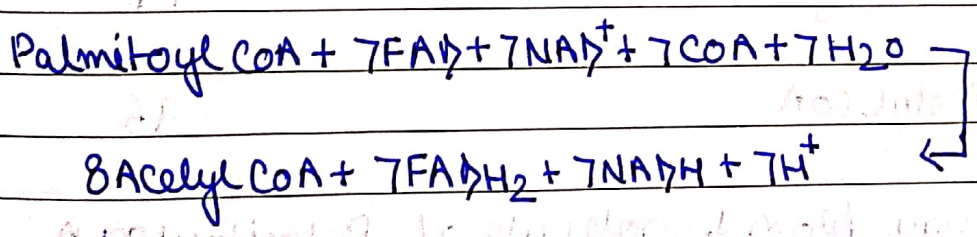 Palmitoyl CoA + 7FAD + 7NAD⁺ + 7COA + 7H₂O
8 Acetyl CoA + 7FADH₂ + 7NADH + 7H⁺